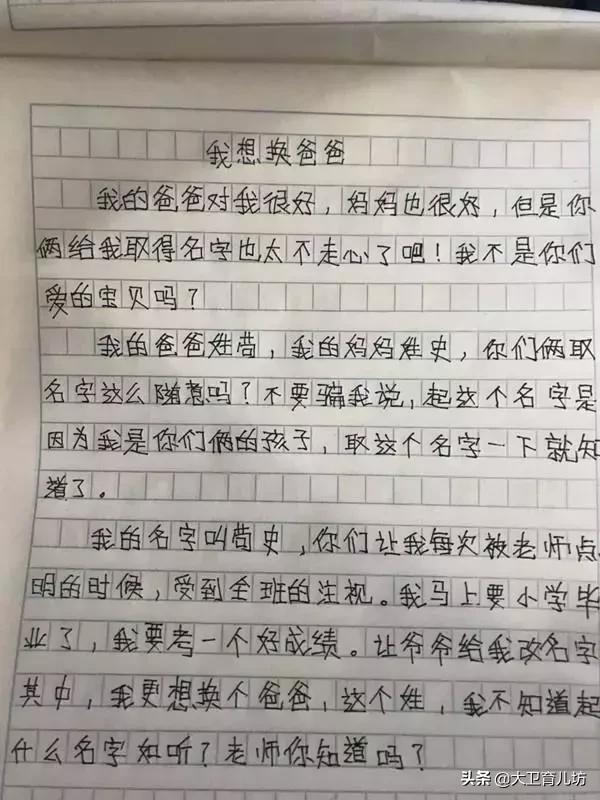 我想换爸爸
我的爸爸对我很好，妈妈也很好，但是你
俩给我取得名字也太不走心了吧！我不是你们
爱的宝贝吗？
我的爸爸姓苟，我的妈妈姓史，你们俩取
名字这么随意吗？不要骗我说，起这个名字是
因为我是你们俩的孩子，取这个名字一下就知
道了。
我的名字叫苟史，你们让我每次被老师点
明的时候，受到全班的注视。我马上要小学毕
业了，我要考一个好成绩。让爷爷给我改名字
其中，我更想换个爸爸，这个姓，我不知道起
什么名字如听？老师你知道吗？
头条 @大卫育儿坊